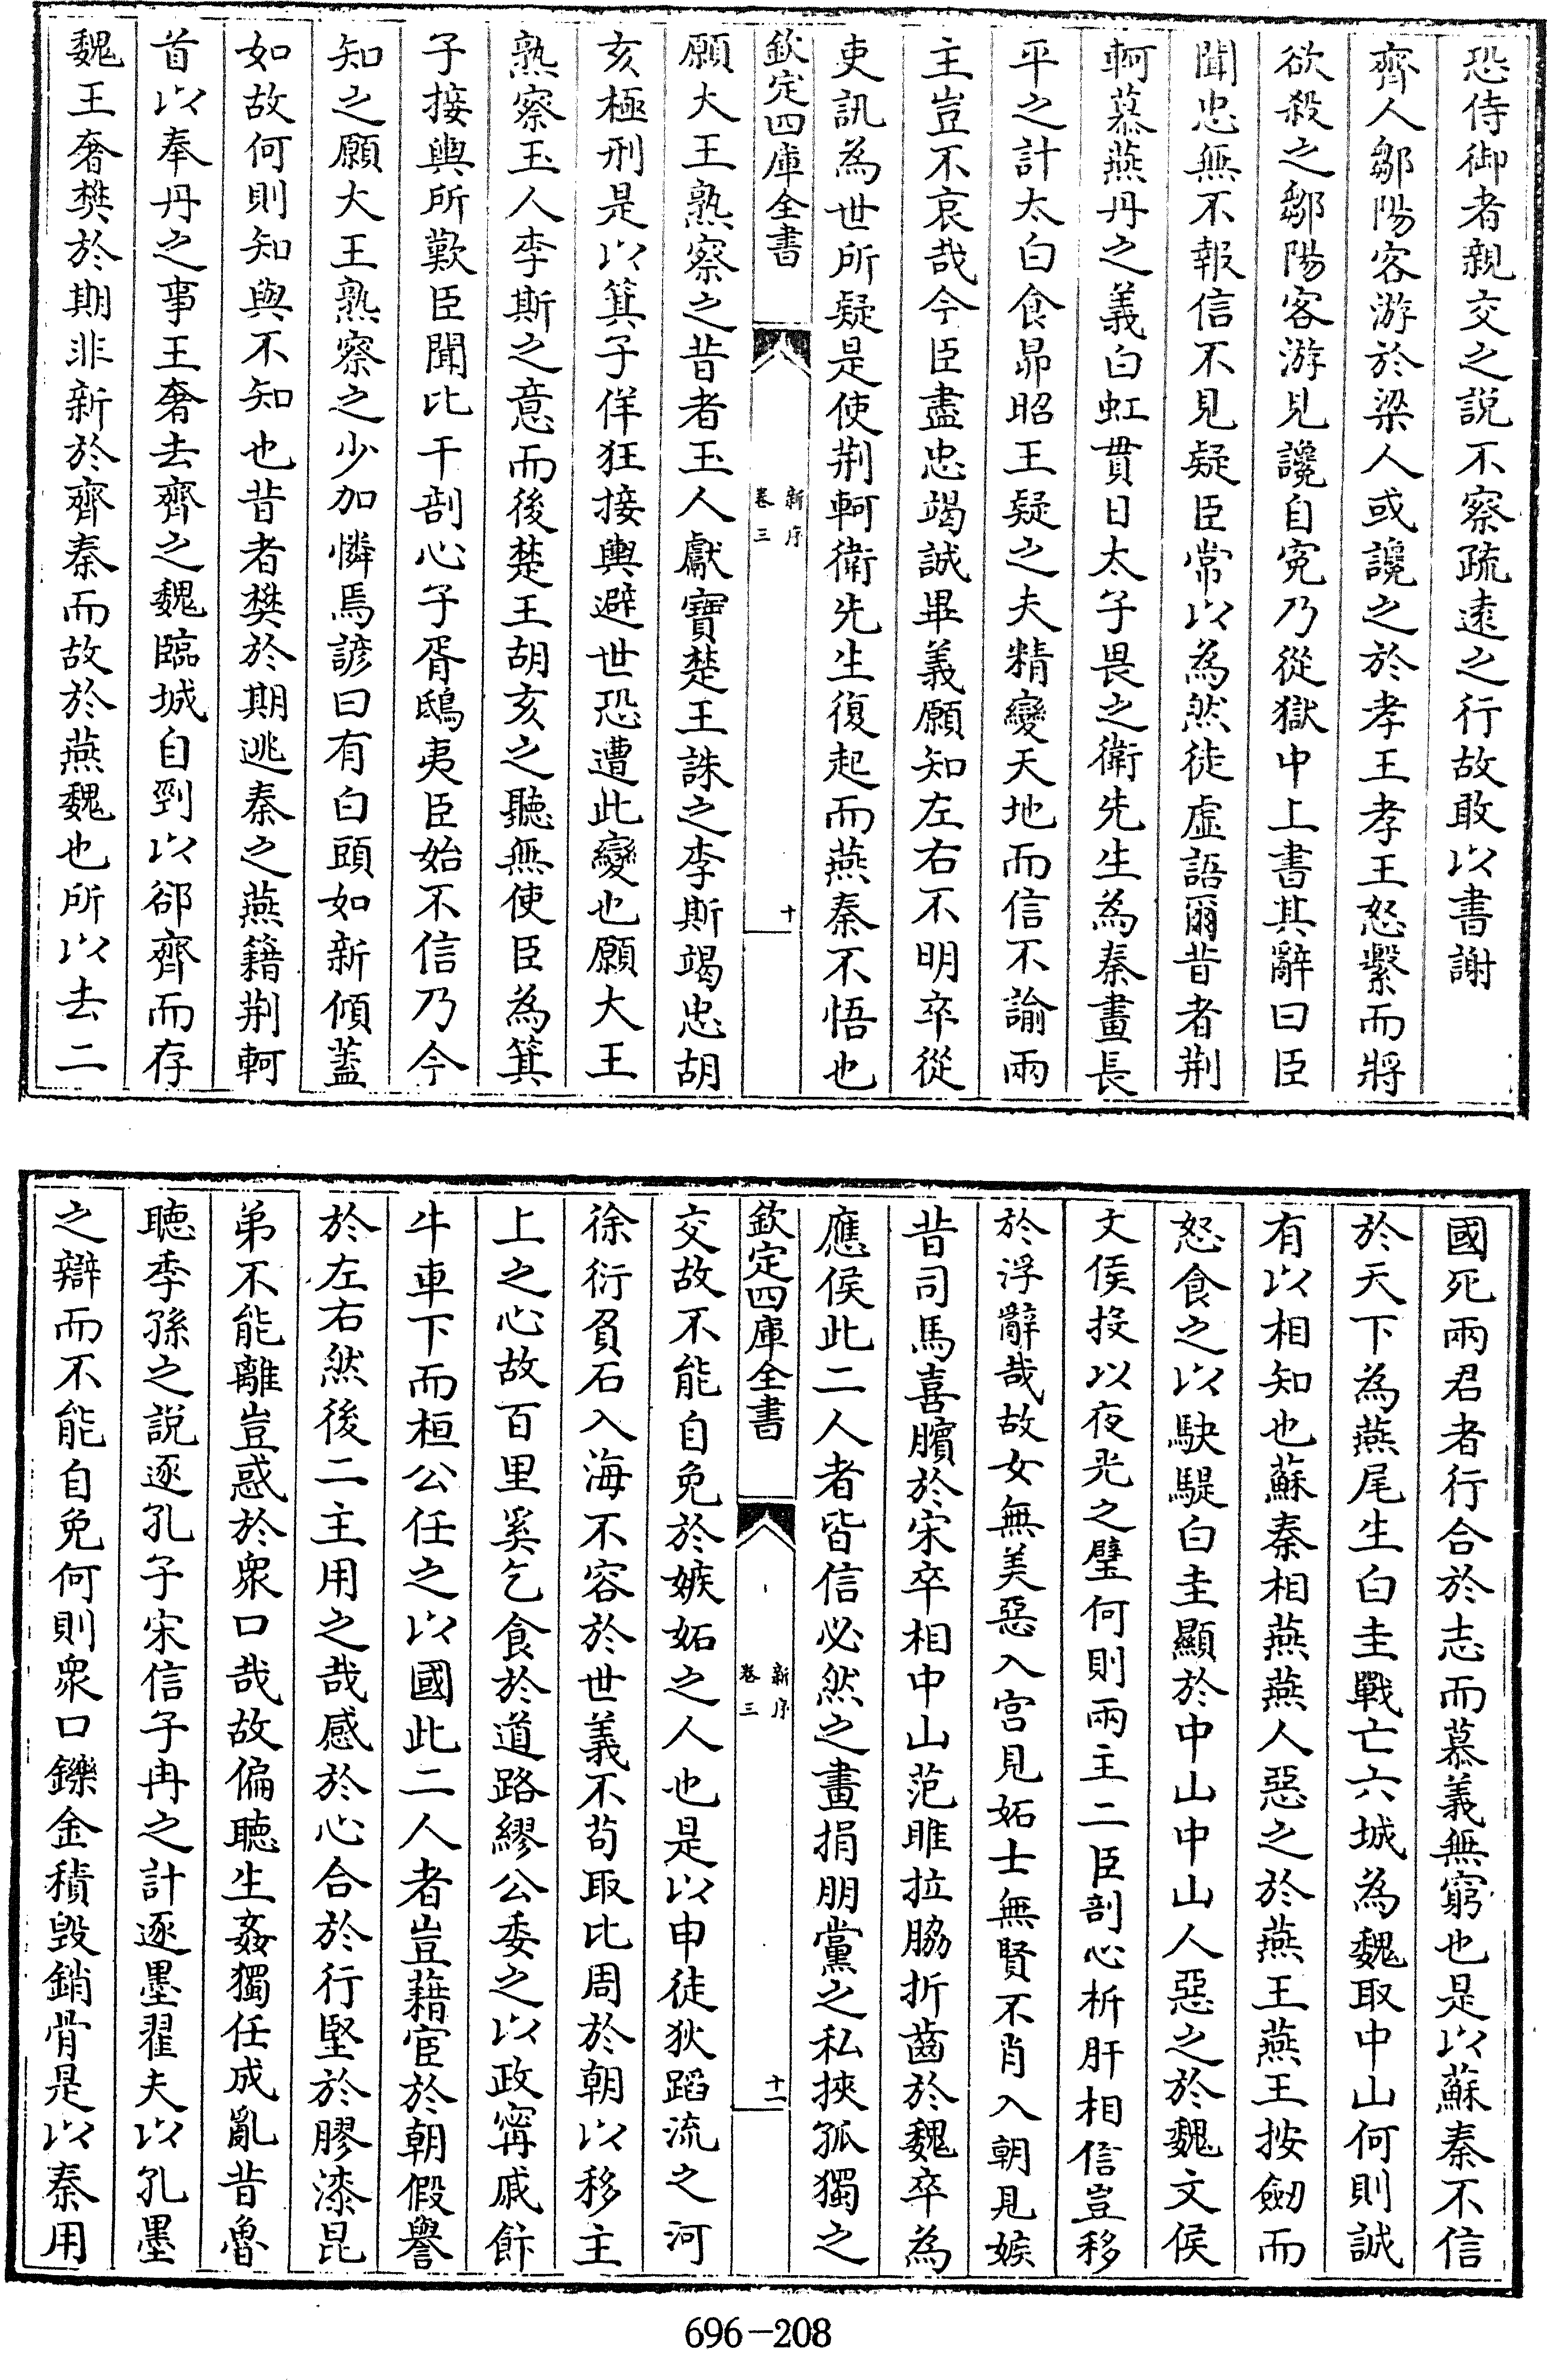 恐侍御者親交之説不察疏遠之行故敢以書謝
齊人鄒陽客游於梁人或讒之於孝王孝王怒繫而將
欲殺之鄒陽客游見讒自寃乃從獄中上書其辭曰臣
聞忠無不報信不見疑臣常以為然徒虛語爾昔者荆
軻慕燕丹之義白虹貫日太子畏之衛先生為秦畫長
平之計太白食昴昭王疑之夫精變天地而信不諭兩
主豈不哀哉今臣盡忠竭誠畢義願知左右不明卒從
吏訊為世所疑是使荆軻衛先生復起而燕秦不悟也
欽定四庫全書
新序
卷三
十
願大王熟察之昔者玉人獻寶楚王誅之李斯竭忠胡
亥極刑是以箕子佯狂接輿避世恐遭此變也願大王
熟察玉人李斯之意而後楚王胡亥之聽無使臣為箕
子接輿所歎臣聞比干剖心子胥鴟夷臣始不信乃今
知之願大王熟察之少加憐焉諺曰有白頭如新傾蓋
如故何則知與不知也昔者樊於期逃秦之燕籍荆軻
首以奉丹之事王奢去齊之魏臨城自剄以郤齊而存
魏王奢樊於期非新於齊秦而故於燕魏也所以去二
國死兩君者行合於志而慕義無窮也是以蘇秦不信
於天下為燕尾生白圭戰亡六城為魏取中山何則誠
有以相知也蘇秦相燕燕人惡之於燕王燕王按劒而
怒食之以駃騠白圭顯於中山中山人惡之於魏文侯
文侯投以夜光之璧何則兩主二臣剖心析肝相信豈移
於浮辭哉故女無美惡入宫見妬士無賢不肖入朝見嫉
昔司馬喜臏於宋卒相中山范雎拉脇折齒於魏卒為
應侯此二人者皆信必然之畫捐朋黨之私挾孤獨之
欽定四庫全書
新序
卷三
十一
交故不能自免於嫉妬之人也是以申徒狄蹈流之河
徐衍負石入海不容於世義不苟取比周於朝以移主
上之心故百里奚乞食於道路繆公委之以政甯戚飰
牛車下而桓公任之以國此二人者豈藉宦於朝假譽
於左右然後二主用之哉感於心合於行堅於膠漆昆
弟不能離豈惑於衆口哉故偏聽生姦獨任成亂昔魯
聽季孫之説逐孔子宋信子冉之計逐墨翟夫以孔墨
之辯而不能自免何則衆口鑠金積毁銷骨是以秦用
696-208